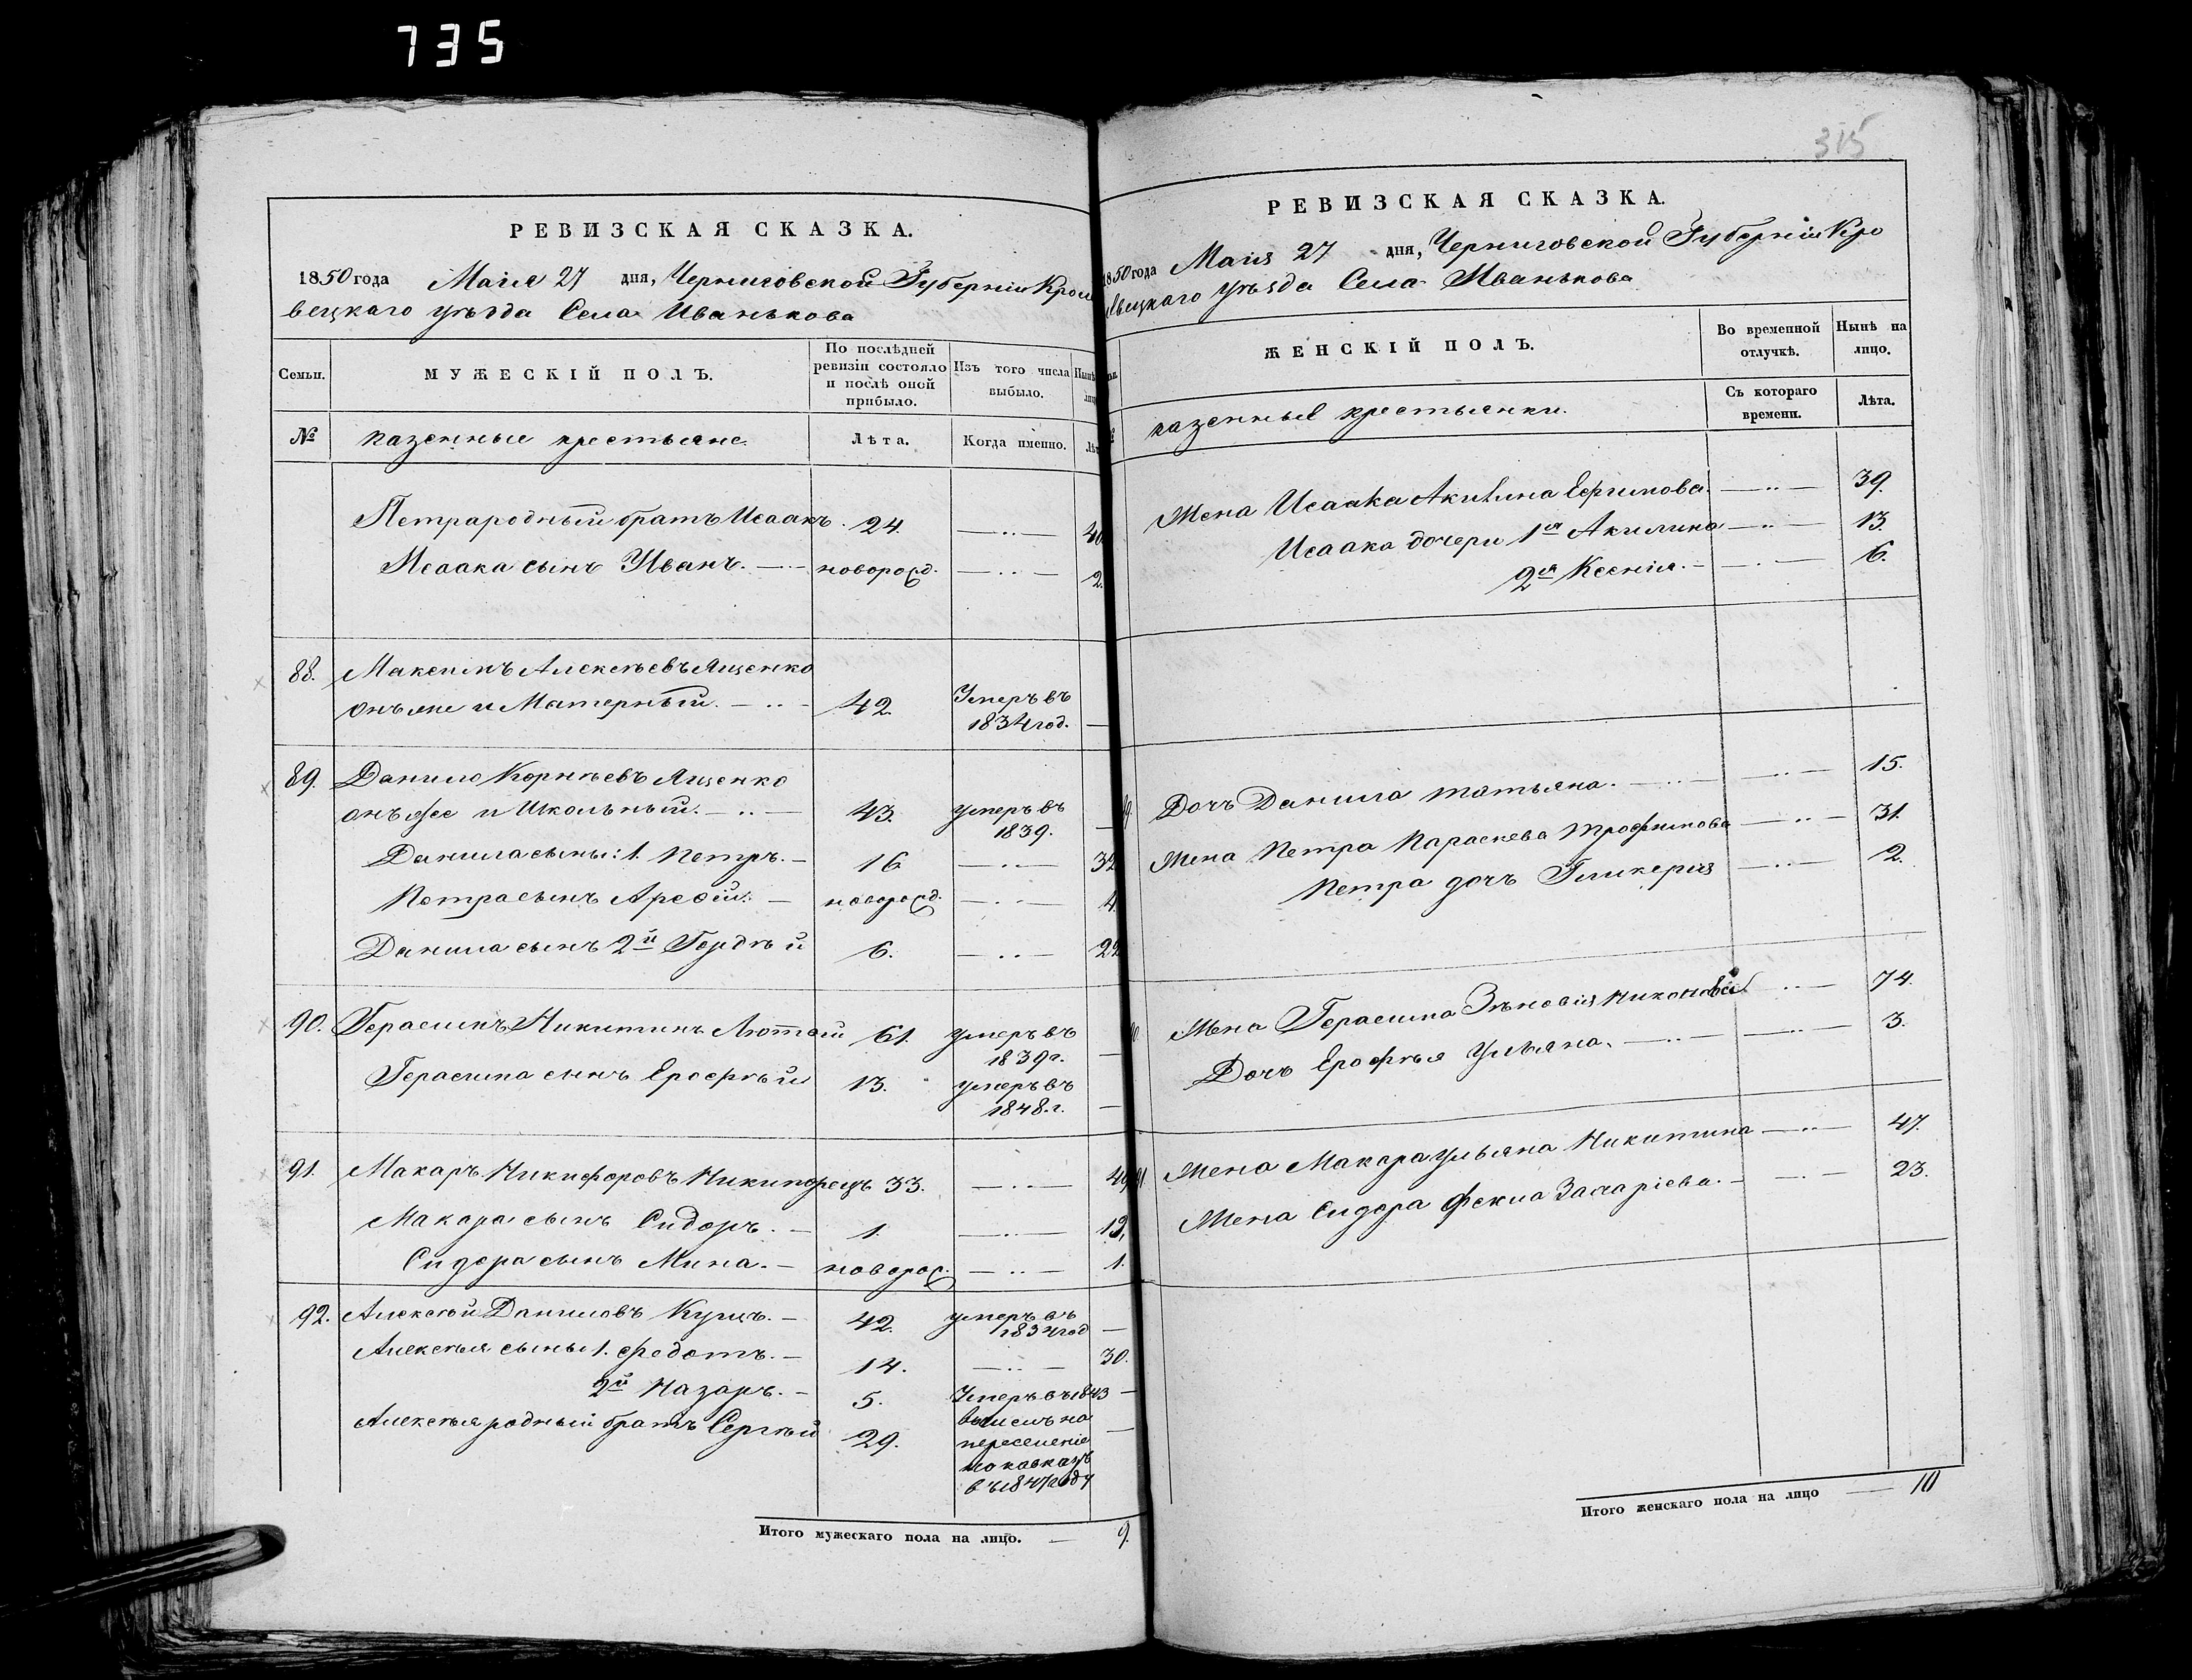 735
315
РЕВИЗСКАЯ СКАЗКА.
1850 года Маія 27 дня, Черниговской Губерніи Крол
вецкаго уѣзда Села Иванькова
Семьи. МУЖЕСКІЙ ПОЛЪ. По послѣдней ревизіи состояло и послѣ оной прибыло. Изъ того числа выбыло. Нынѣ
№ казенные крестьяне. Лѣта. Когда именно.
Петра родный братъ Исаакъ. 24. — 40
Исаака сынъ Иванъ. — новорожд. — 2.
88. Максимъ Алексѣевъ Яценко
онъ же и Матерный. — 42. Умеръ въ
1834 год. —
89. Данило Корнѣевъ Яценко
онъ же и Школьный. — 43. умеръ въ
1839. —
Данила сыны: 1. Петръ. — 16 — 32
Петра сынъ Арефій. — новорожд. — 4.
Данила сынъ 2й Гордѣй 6. — 22
90. Герасимъ Никитинъ Лютый 61. умеръ въ
1839 г. —
Герасима сынъ Ерофѣй 13. умеръ въ
1848. г. —
91. Макаръ Никифоровъ Никипорецъ 33. — 49
Макара сынъ Сидоръ. — 1. —
Сидора сынъ Мина. — новорож. — 1.
92. Алексѣй Даниловъ Куцъ. — 42. умеръ въ
1834 год —
Алексѣя сыны 1. Федотъ. — 14. — 30.
2й Назаръ. — 5. Умеръ въ 1843 —
Алексѣя родный братъ Сергѣй 29. вышелъ на
переселеніе —
на кавказъ
въ 1847 году
Итого мужескаго пола на лицо. — 9.
РЕВИЗСКАЯ СКАЗКА.
1850 года Маія 27 дня, Черниговской Губерніи Кро
левецкаго уѣзда Села Иванькова
ЖЕНСКІЙ ПОЛЪ. Во временной отлучкѣ. Нынѣ на лицо.
казенные крестьянки. Съ котораго времени. Лѣта.
Жена Исаака Акилина Ефимова. — 39.
Исаака дочери 1я Акилина — 13.
2я Ксенія. — 6.
Дочь Данила татьяна. — 15.
Жена Петра Параскева трофимова — 31.
Петра дочь Гликерія — 2.
Жена Герасима Зѣновія Никонова — 74.
Дочь Ерофѣя Ульяна. — 3.
91 Жена Макара ульяна Никитина — 47.
Жена Сидора Фекла Захаріева. — 23.
Итого женскаго пола на лицо — 10